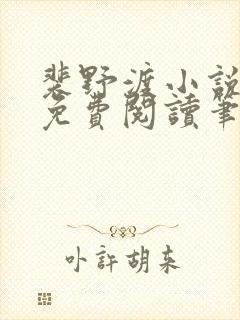 裴野渡小說
免費閱讀筆
卟許胡来